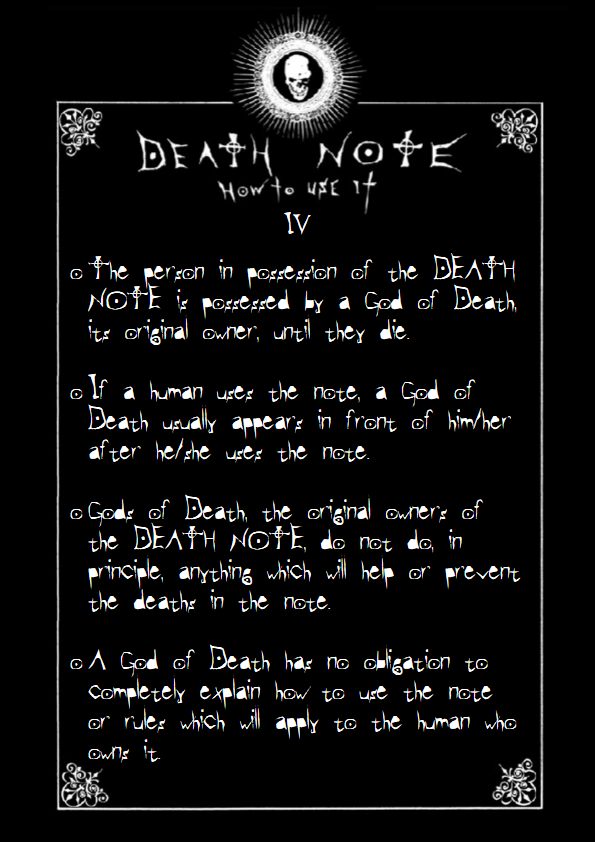 DEATH NOTE
HOW TO USE IT
IV
The person in possession of the DEATH
NOTE is possessed by a God of Death,
its original owner, until they die.
If a human uses the note, a God of
Death usually appears in front of him/her
after he/she uses the note.
Gods of Death, the original owners of
the DEATH NOTE, do not do, in
principle, anything which will help or prevent
the deaths in the note.
A God of Death has no obligation to
completely explain how to use the note
or rules which will apply to the human who
owns it.